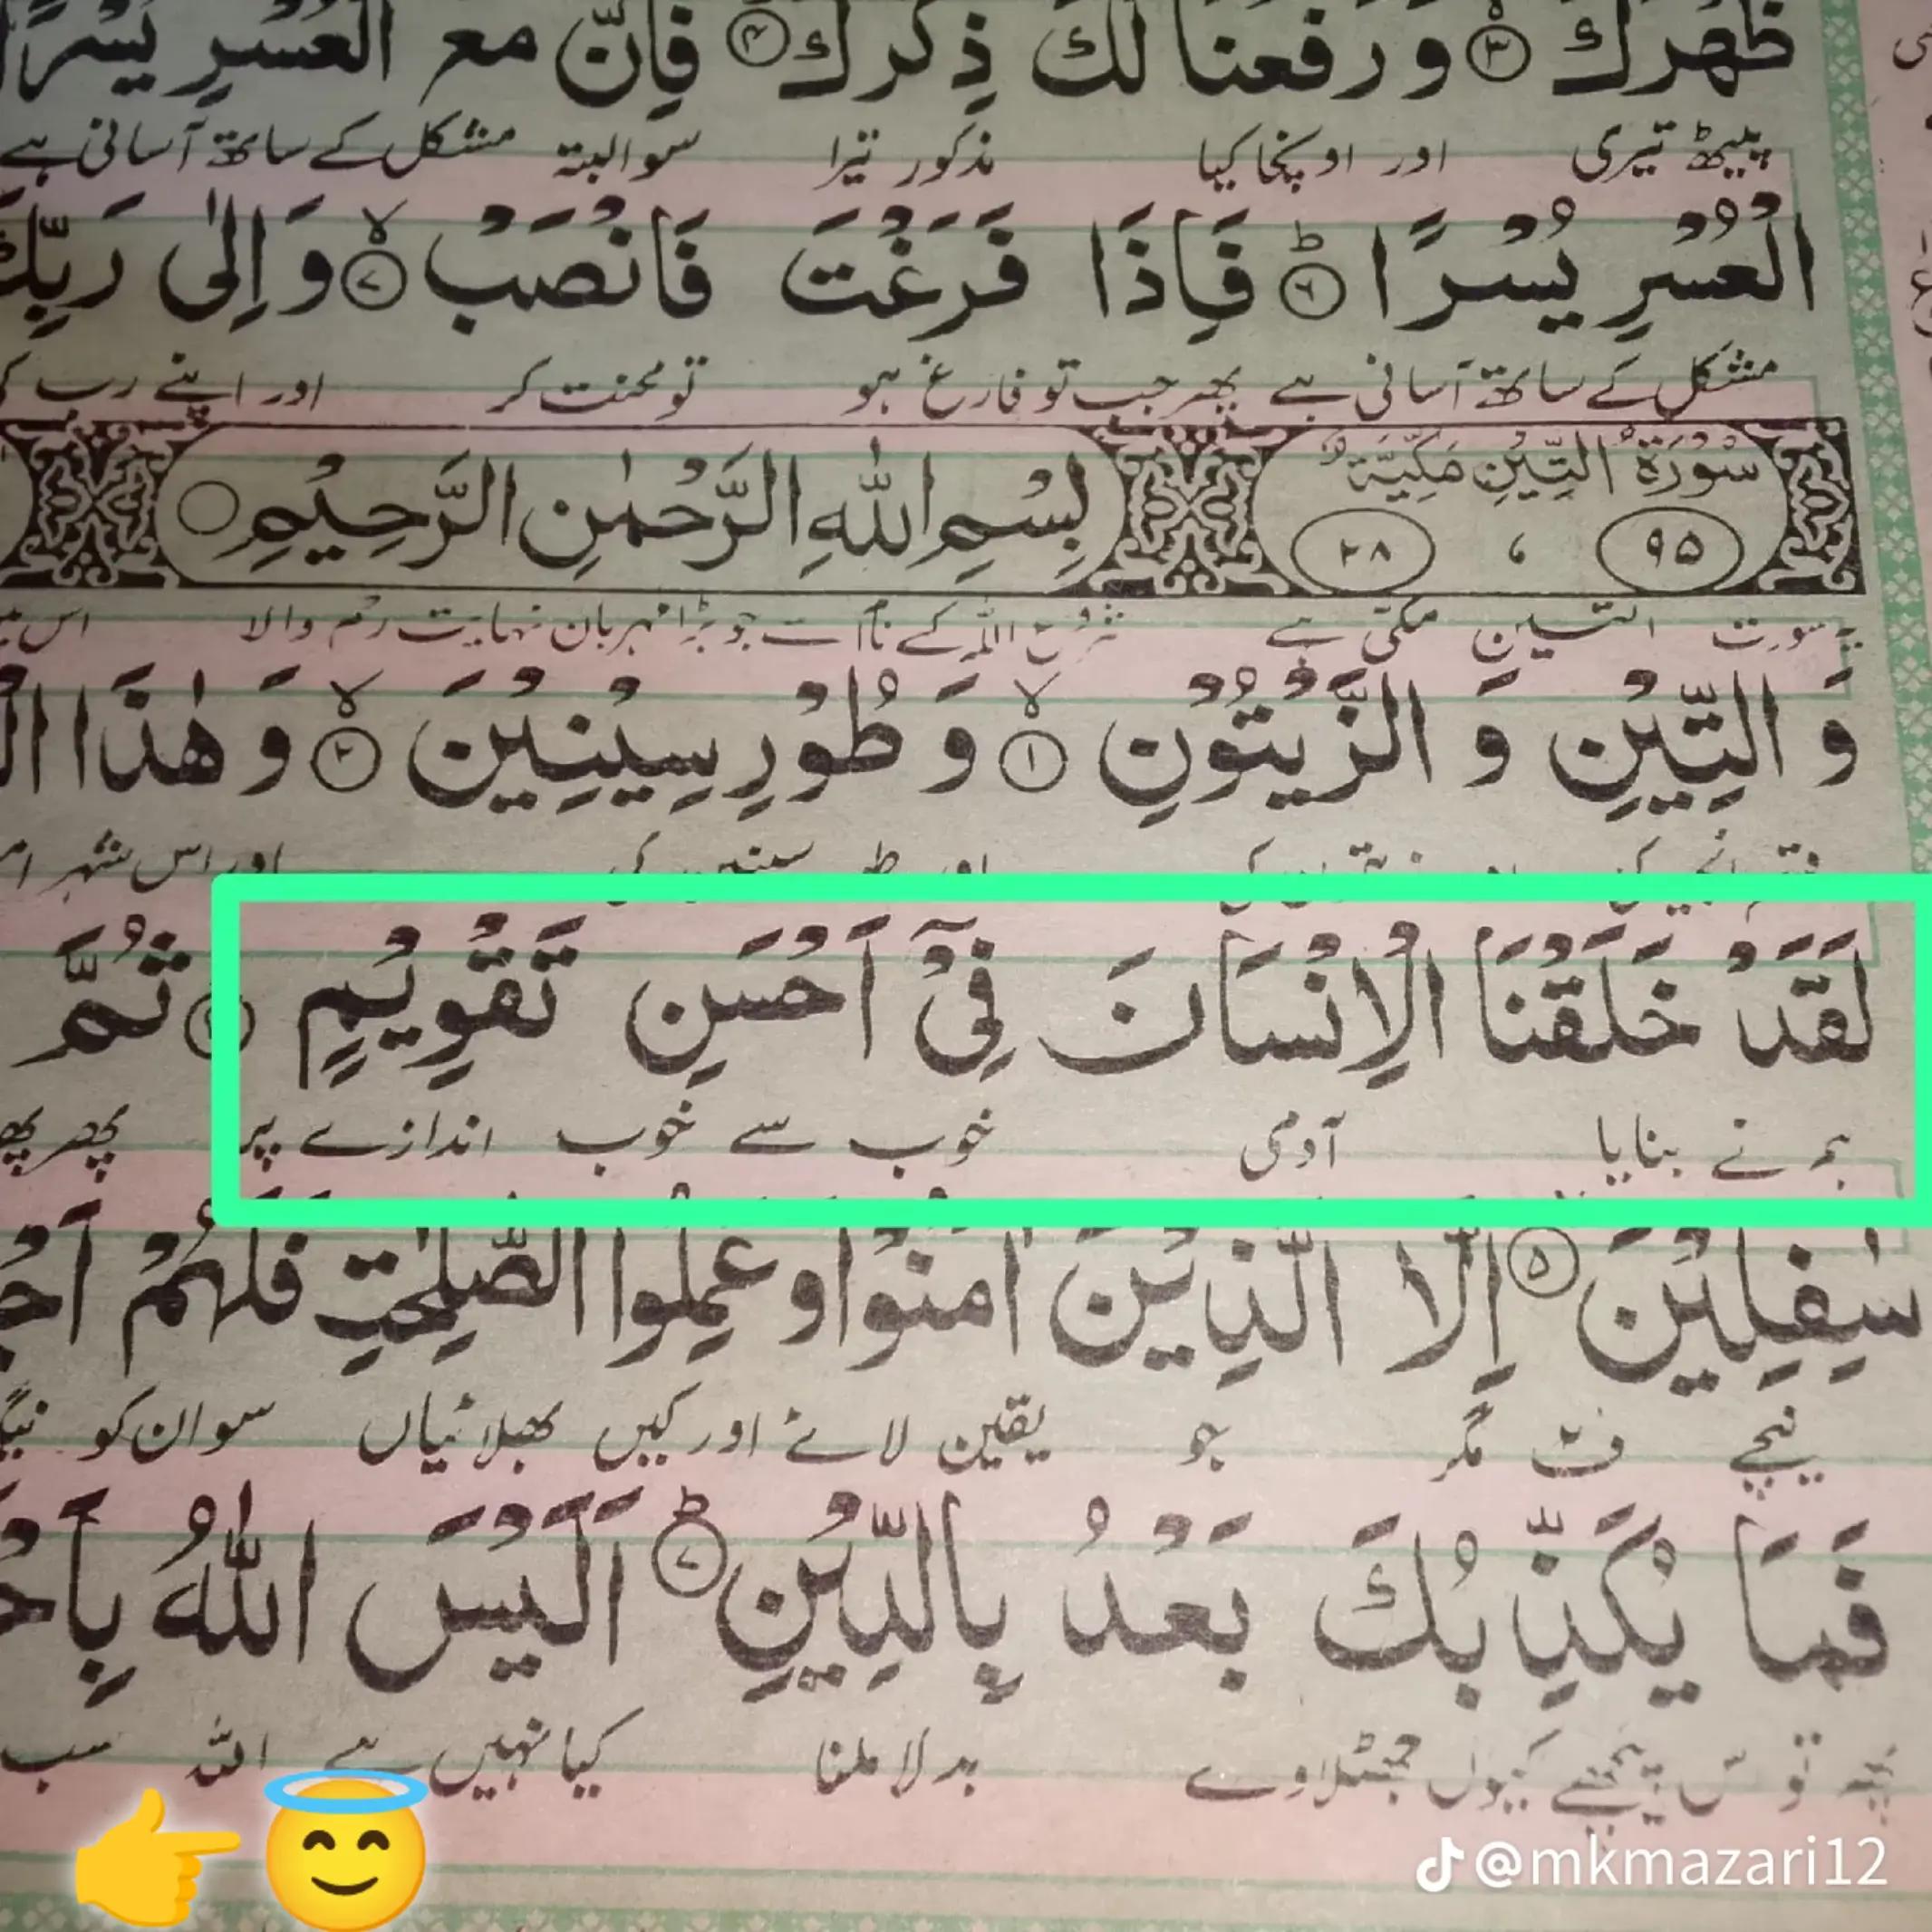 ظَهْرَكَ ۝۳ وَرَفَعْنَا لَكَ ذِكْرَكَ ۝۴ فَاِنَّ مَعَ الْعُسْرِ يُسْرًا
پیٹھ تیری اور اونچا کیا مذکور تیرا سو البتہ مشکل کے ساتھ آسانی ہے
الْعُسْرِ يُسْرًا ۝۶ؕ فَاِذَا فَرَغْتَ فَانْصَبْ ۝۷ۙ وَ اِلٰى رَبِّكَ
مشکل کے ساتھ آسانی ہے پھر جب تو فارغ ہو تو محنت کر اور اپنے رب
سُوْرَةُ التِّيْنِ مَكِّيَّةٌ
۹۵ ، ۲۸
بِسْمِ اللّٰهِ الرَّحْمٰنِ الرَّحِيْمِ
یہ سورت التین مکی ہے شروع اللہ کے نام سے جو بڑا مہربان نہایت رحم والا
وَ التِّيْنِ وَ الزَّيْتُوْنِ ۝۱ۙ وَ طُوْرِ سِيْنِيْنَ ۝۲ۙ وَ هٰذَا
اور اس شہر
لَقَدْ خَلَقْنَا الْاِنْسَانَ فِيْۤ اَحْسَنِ تَقْوِيْمٍ ۝۴ ثُمَّ
ہم نے بنایا آدمی خوب سے خوب اندازے پر پھر
سٰفِلِيْنَ ۝۵ اِلَّا الَّذِيْنَ اٰمَنُوْا وَ عَمِلُوا الصّٰلِحٰتِ فَلَهُمْ
نیچے ف۲ مگر جو یقین لائے اور کیں بھلائیاں سو ان کو
فَمَا يُكَذِّبُكَ بَعْدُ بِالدِّيْنِ ۝۷ؕ اَلَيْسَ اللّٰهُ
پھر تو اس پیچھے کیوں جھٹلاوے بدلا ملنا کیا نہیں ہے اللہ سب
@mkmazari12